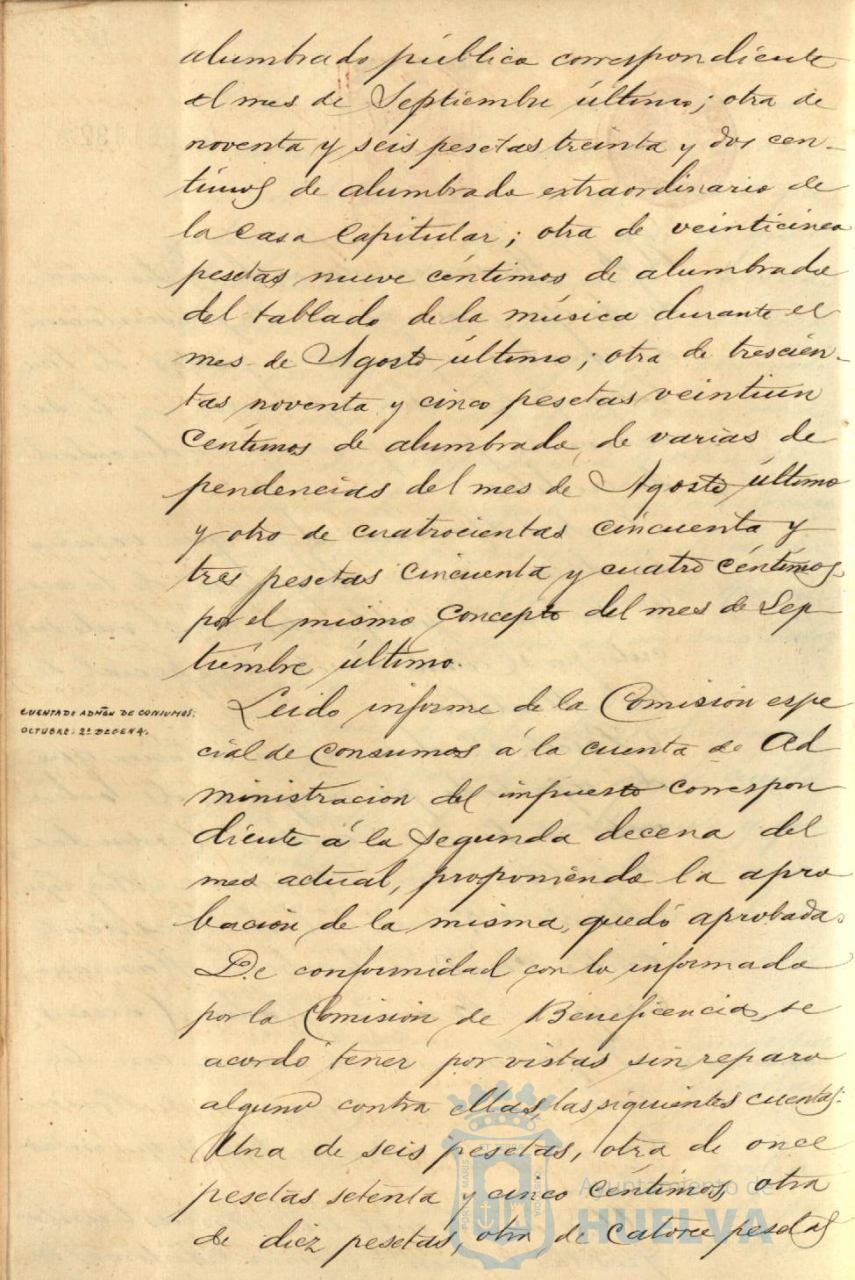 alumbrado público correspondiente
al mes de Septiembre último; otra de
noventa y seis pesetas treinta y dos cen-
timos de alumbrado extraordinario de
la Casa Capitular; otra de veinticinco
pesetas nueve céntimos de alumbrado
del tablado de la música durante el
mes de Agosto último; otra de trescien-
tas noventa y cinco pesetas veintiun
céntimos de alumbrado de varias de
pendencias del mes de Agosto último
y otro de cuatrocientas cincuenta y
tres pesetas cincuenta y cuatro céntimos
por el mismo concepto del mes de Sep-
tiembre último.
CUENTA DE ADMÓN DE CONSUMOS.
OCTUBRE. 2ª DECENA.
Leido informe de la Comisión espe
cial de Consumos á la cuenta de Ad
ministracion del impuesto correspon
diente á la segunda decena del
mes actual, proponiendo la apro
bación de la misma, quedó aprobada.
De conformidad con lo informado
por la Comisión de Beneficencia, se
acordó tener por vistas sin reparo
alguno contra ellas, las siguientes cuentas:
Una de seis pesetas, otra de once
pesetas setenta y cinco céntimos, otra
de diez pesetas, otra de catorce pesetas
Ayuntamiento de
HUELVA